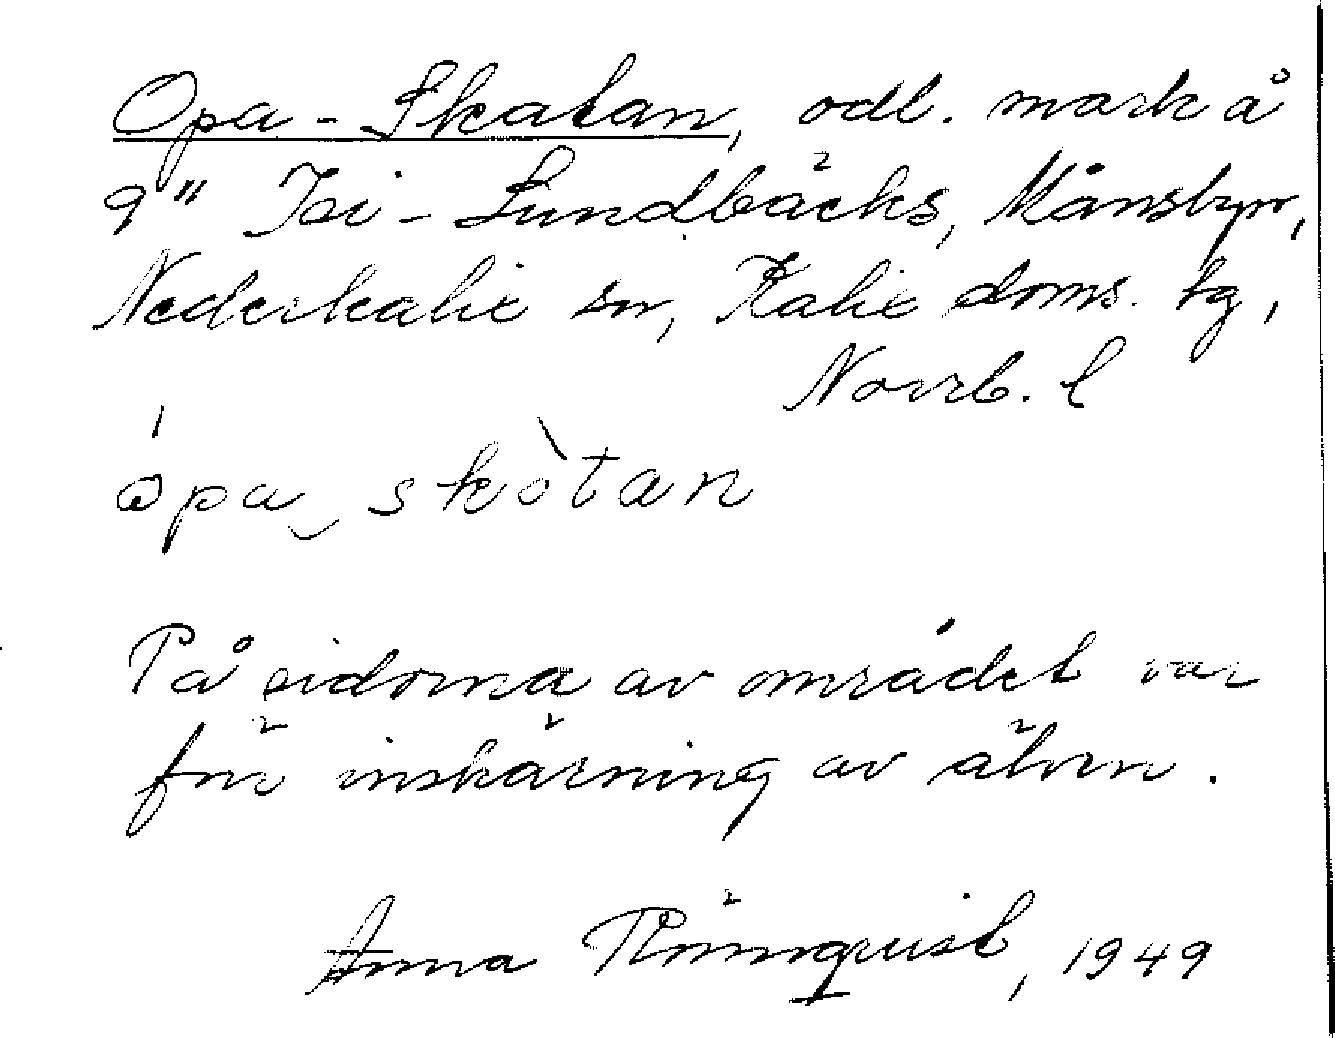 Opa-Skatan, odl. mark å
9" Isi-Lundbäcks, Månsbyn,
Nederkalix sn, Kalix doms. tg,
Norrb. l
ópa‿skòtan
På sidorna av området var
förr inskärning av älven.
Anna Rönnquist, 1949